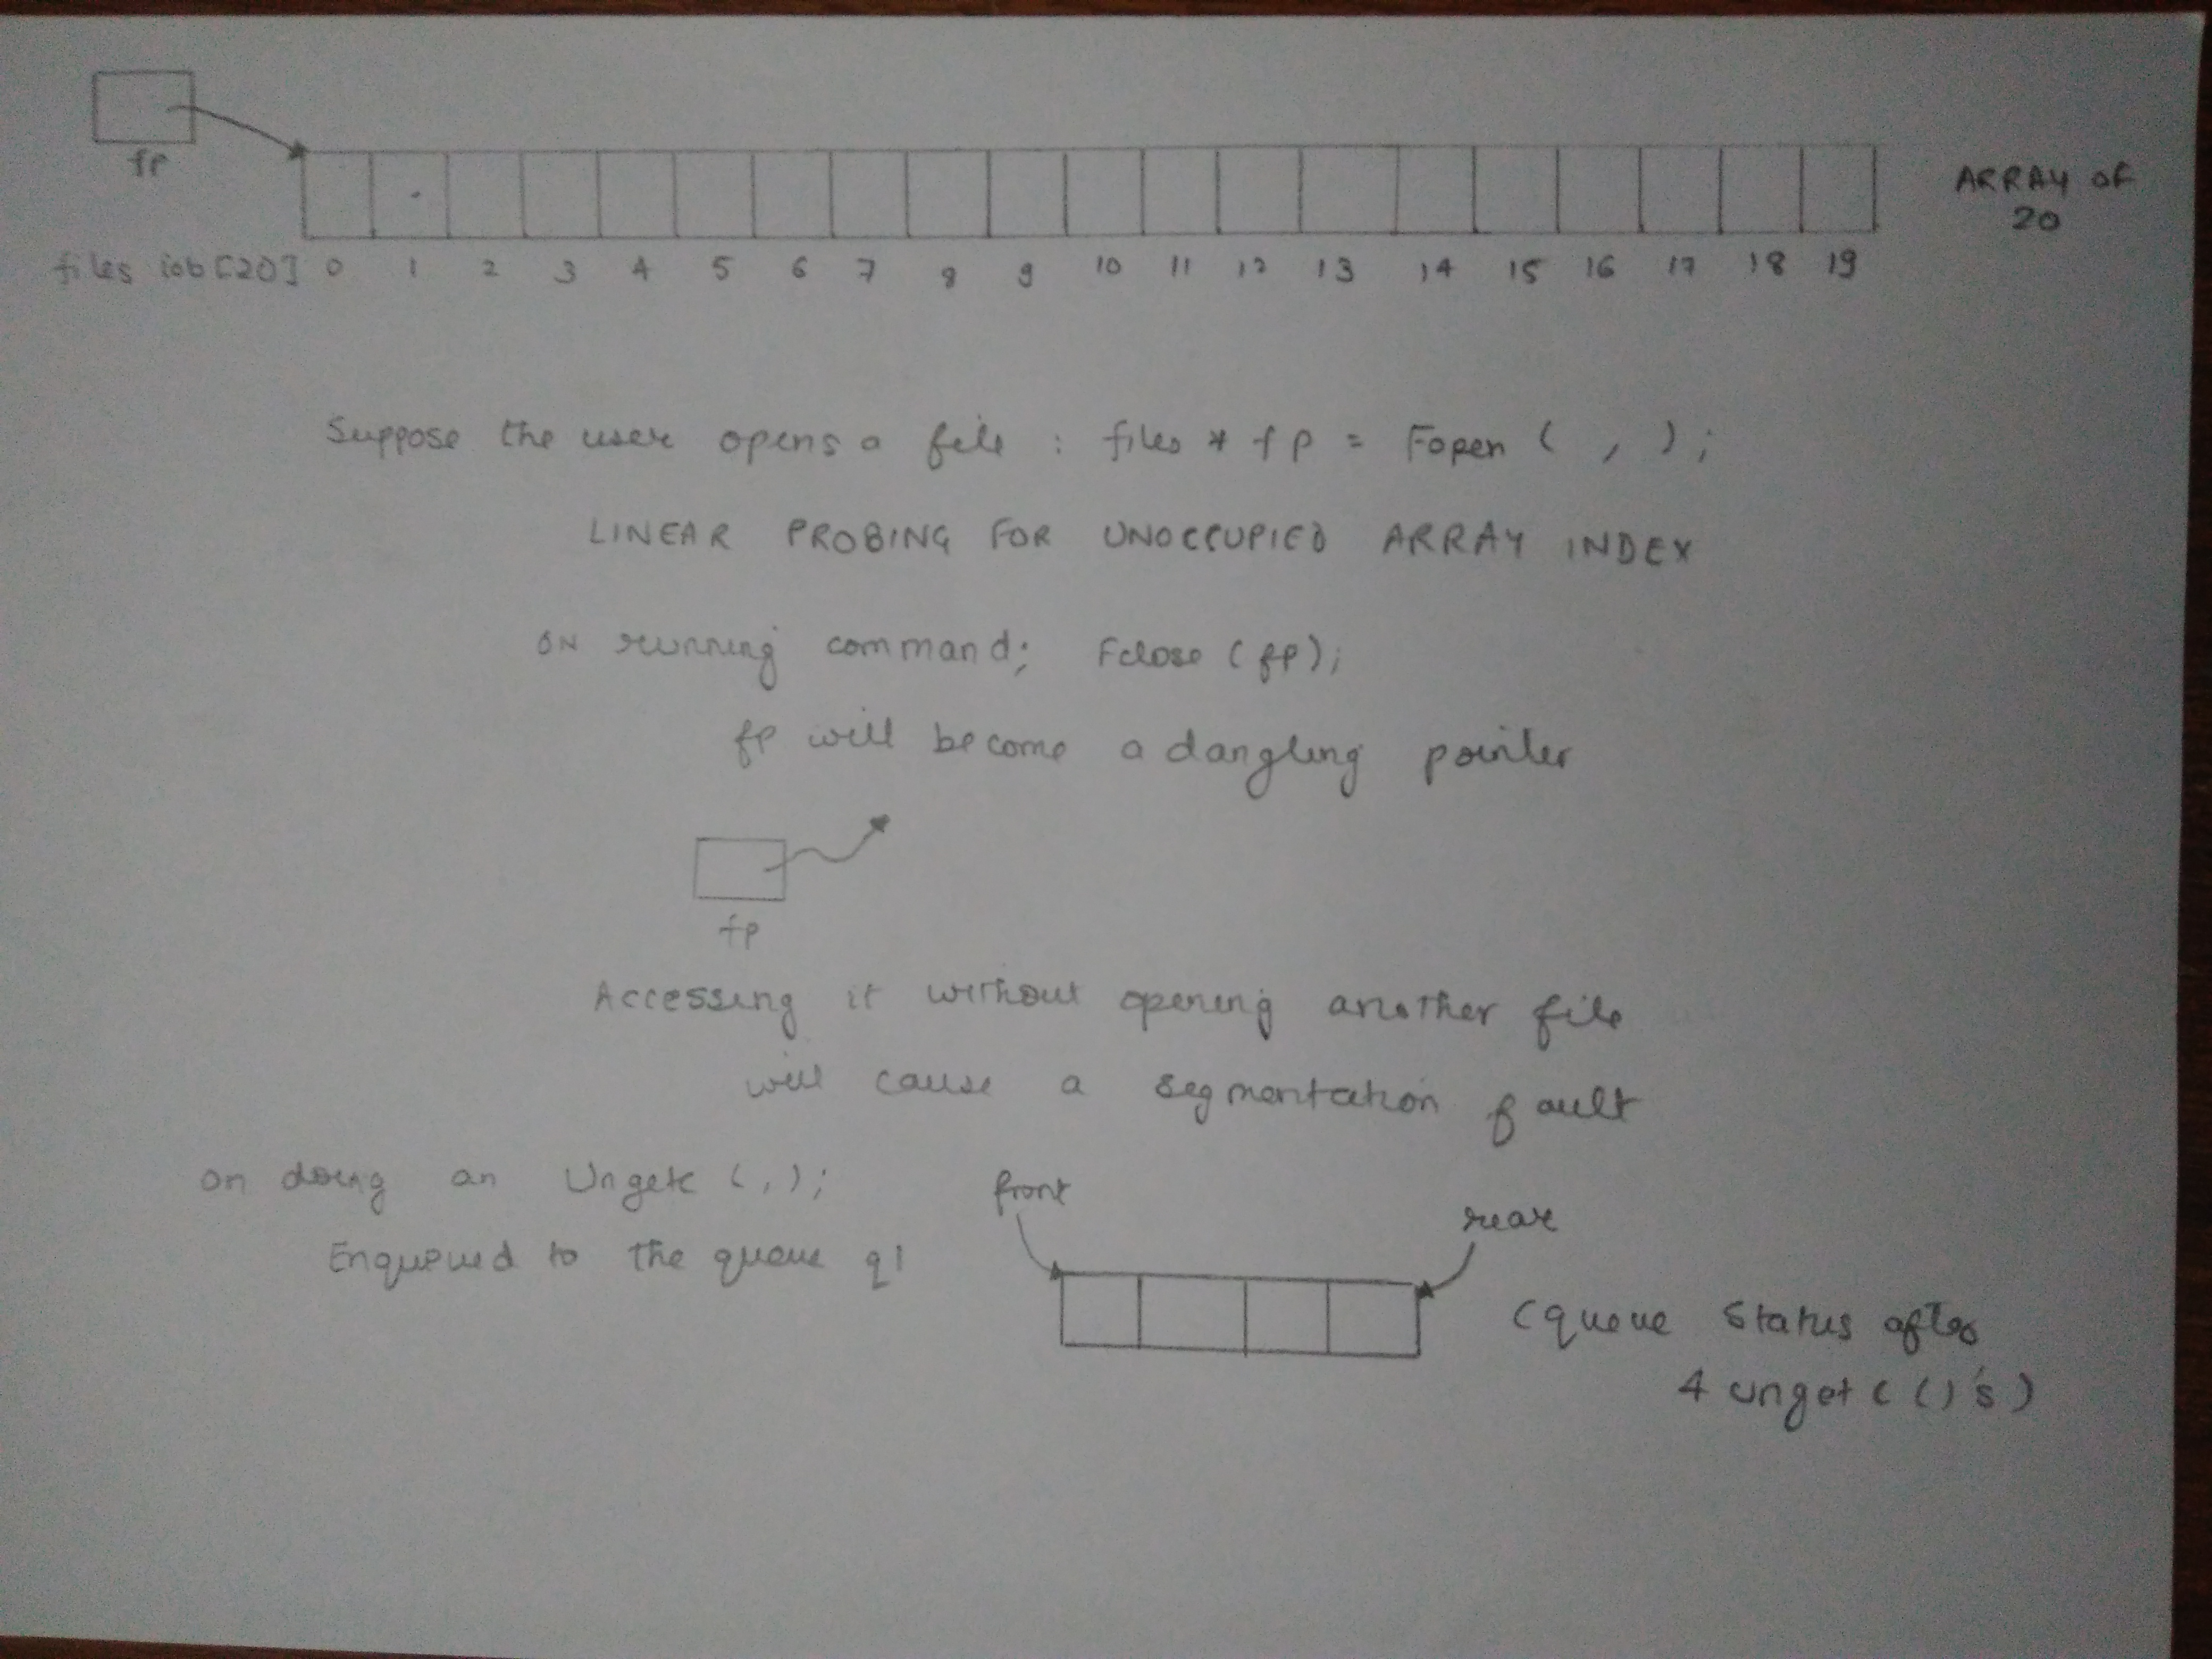 fp
ARRAY OF
20
files iob[20] 0 1 2 3 4 5 6 7 8 9 10 11 12 13 14 15 16 17 18 19
Suppose the user opens a file : files * fp = Fopen ( , );
LINEAR PROBING FOR UNOCCUPIED ARRAY INDEX
ON running command; Fclose (fp);
fp will become a dangling pointer
fp
Accessing it without opening another file
will cause a segmentation fault
on doing an Ungetc (,);
Enqueued to the queue q1
front
rear
(queue status after
4 ungetc()'s)